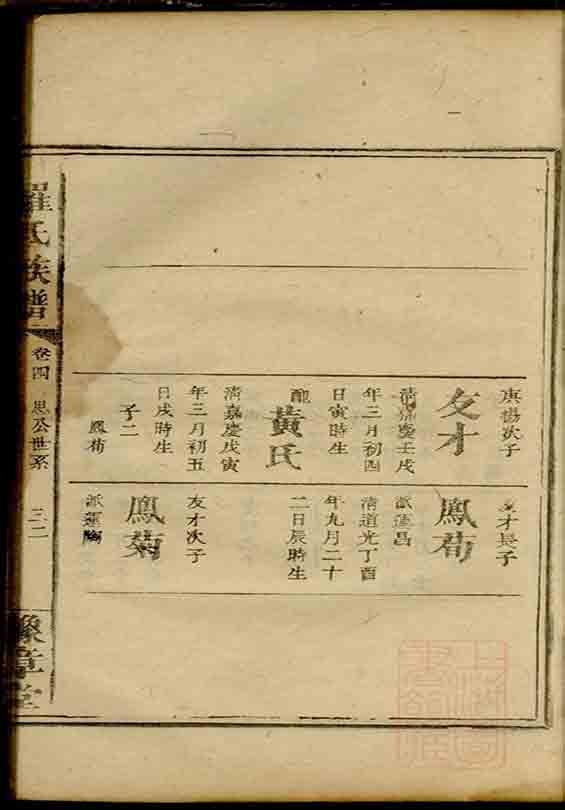 庚楊次子
友才
清嘉慶壬戌
年三月初四
日寅時生
配
黃氏
清嘉慶戊寅
年三月初五
日戌時生
子二
鳳荀
友才長子
鳳荀
派蓮昌
清道光丁酉
年九月二十
二日辰時生
友才次子
鳳菊
派蓮
羅氏族譜
卷四
思公世系
三二
豫章堂